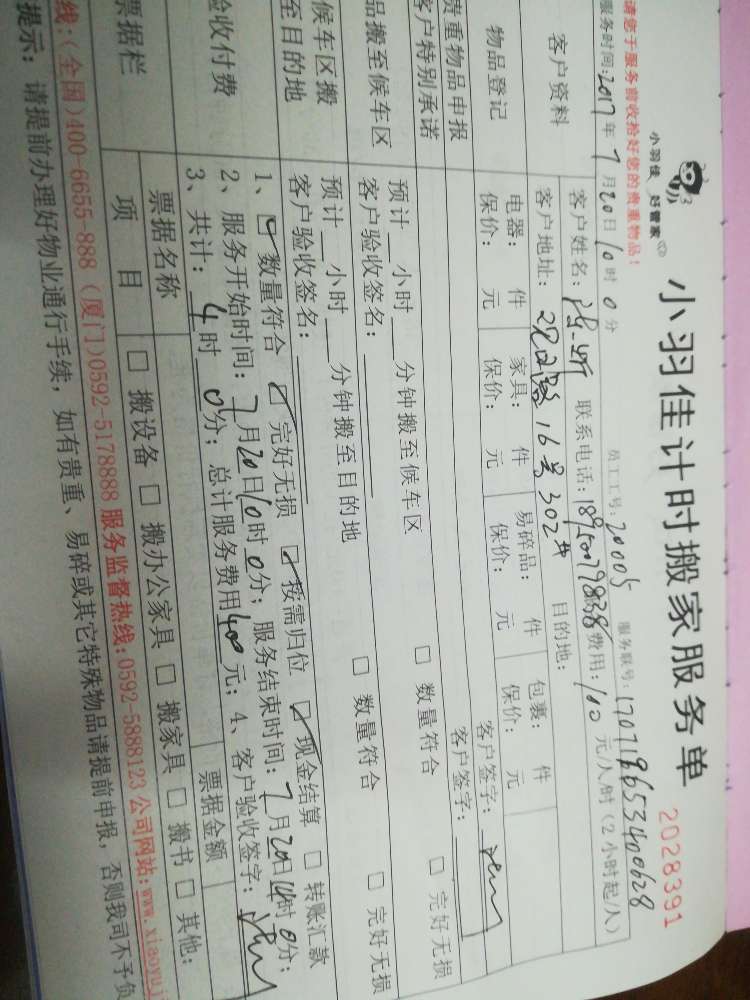 小羽佳计时搬家服务单
2028391
小羽佳 好管家
员工工号:20005 服务联号:170719653400628
请您于服务前收拾好您的贵重物品!
服务时间:2017年7月20日10时0分
客户资料
客户姓名: 联系电话: 费用:100元/人/时(2小时起/人)
客户地址: 16号302 目的地:
物品登记
电器: 件 家具: 件 易碎品: 件 包裹: 件
保价: 元 保价: 元 保价: 元 保价: 元
客户签字:
贵重物品申报
客户特别承诺
客户签字:
品搬至候车区
预计 小时 分钟搬至候车区 □ 数量符合 □ 完好无损
客户验收签名:
候车区搬
至目的地
预计 小时 分钟搬至目的地 □ 数量符合 □ 完好无损
客户验收签名:
验收付费
1、☑ 数量符合 ☑ 完好无损 ☑ 按需归位 ☑ 现金结算 □ 转账汇款
2、服务开始时间:7月20日10时0分;服务结束时间:7月20日14时0分;
3、共计:4时0分;总计服务费用400元;4、客户验收签字:
票据栏
票据名称 票据金额
项目 □ 搬设备 □ 搬办公家具 □ 搬家具 □ 搬书 □ 其他:
线:(全国)400-6655-888 (厦门)0592-5178888 服务监督热线:0592-5888123 公司网站:www.xiaoyuj
提示:请提前办理好物业通行手续,如有贵重、易碎或其它特殊物品请提前申报,否则我司不予负